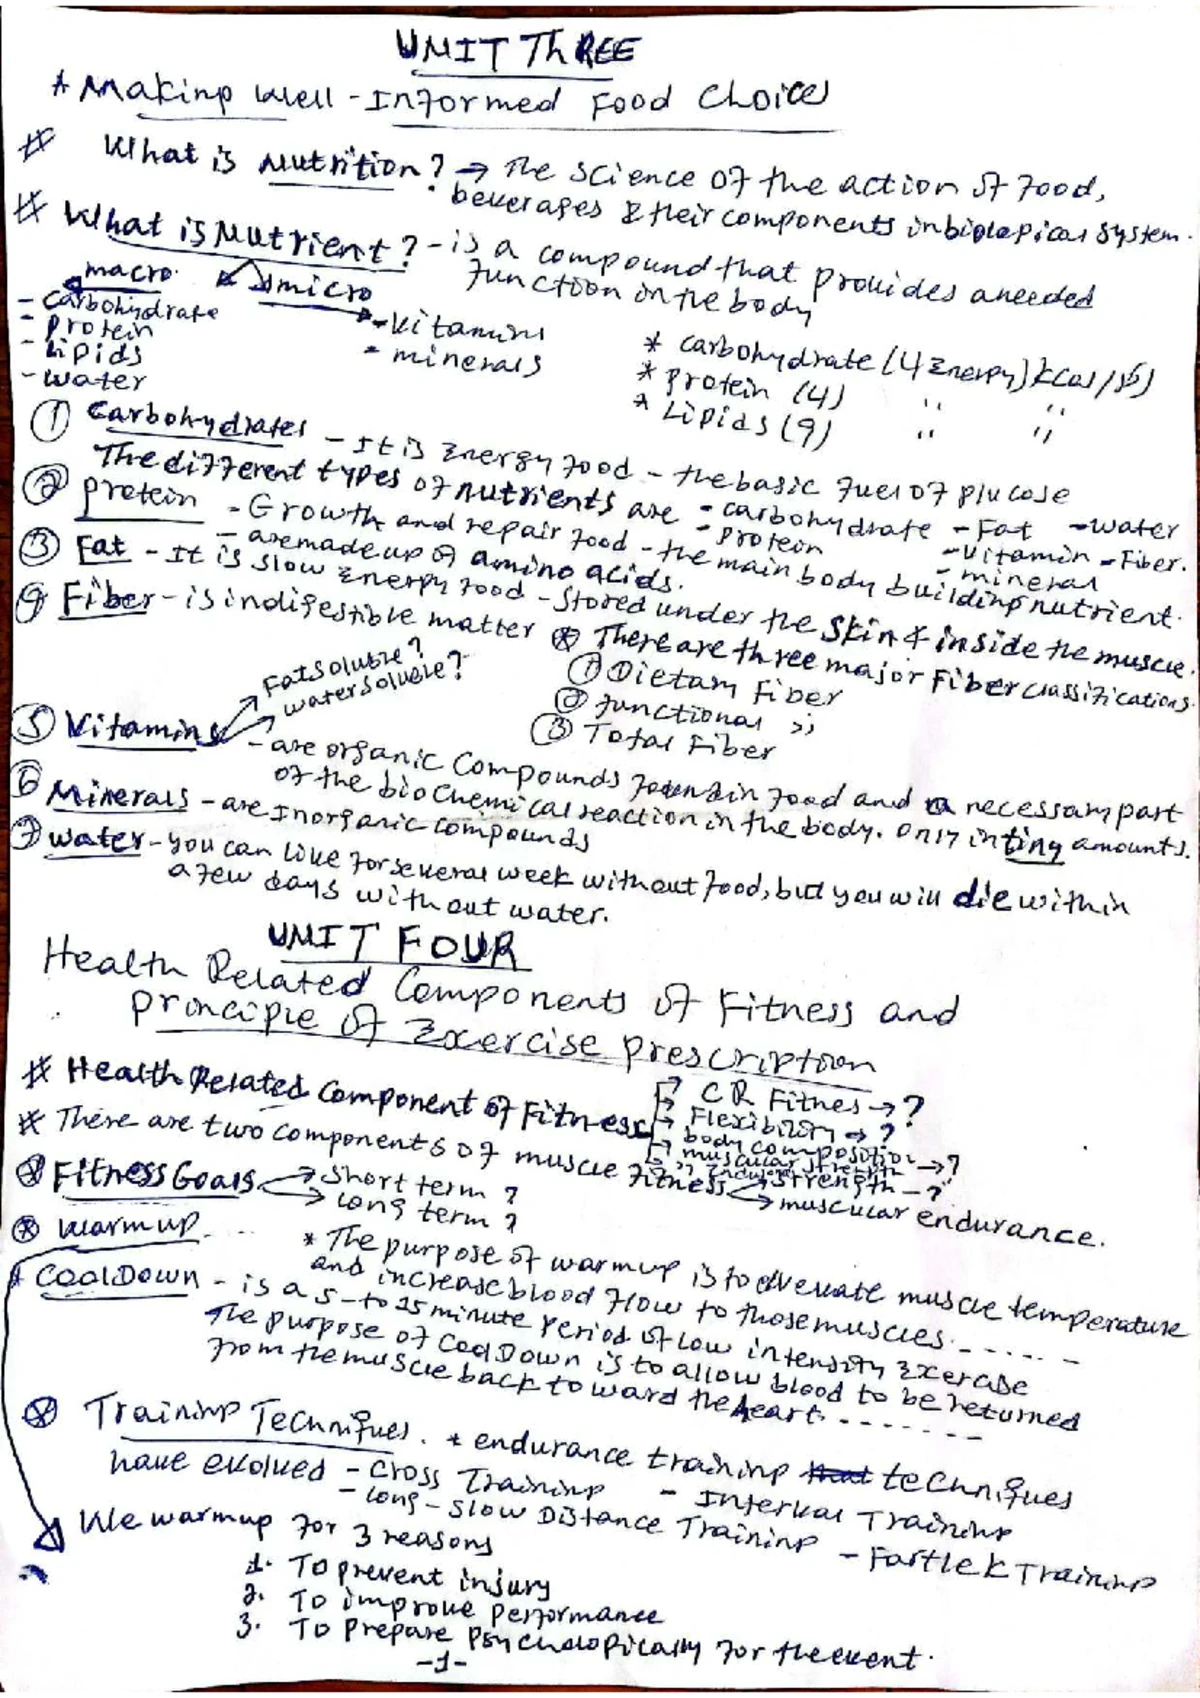 UNIT THREE
* Making well - Informed Food Choices
# What is Nutrition? → The science of the action of food,
beverages & their components in biological system.
# What is Nutrient? - is a compound that provides a needed
function in the body
macro micro
- Carbohydrate
- Protein
- Lipids
- Water
- Vitamins
- minerals
* carbohydrate (4 Energy) kcal/g)
* protein (4) " "
* Lipids (9) " "
① Carbohydrates - It is Energy food - the basic fuel of glucose
The different types of nutrients are - carbohydrate - Fat - water
- Protein - Vitamin - Fiber.
- mineral
② protein - Growth and repair food - the main body building nutrient.
- are made up of amino acids.
③ Fat - It is slow Energy food - Stored under the skin & inside the muscle.
④ Fiber - is indigestible matter ⊛ There are three major Fiber classifications.
① Dietary Fiber
② functional ,,
③ Total Fiber
⑤ Vitamins Fat soluble?
water soluble?
- are organic compounds found in food and a necessary part
of the biochemical reaction in the body. only in tiny amounts.
⑥ Minerals - are Inorganic compounds
⑦ water - you can live for several week without food, but you will die within
a few days without water.
UNIT FOUR
Health Related Components of Fitness and
principle of Exercise prescription
# Health Related Component of Fitness → CR Fitnes → ?
→ Flexibility → ?
→ body composition → ?
→ muscular strength
→ ,, Endurance - ?
* There are two components of muscle fitness → strength
→ muscular endurance.
⊛ Fitness Goals → Short term ?
→ long term ?
⊛ warm up .... * The purpose of warm up is to elevate muscle temperature
and increase blood flow to those muscles.......
* Cool Down - is a 5-to 15 minute period of low intensity Exercise
The purpose of cool Down is to allow blood to be returned
from the muscle back to ward the heart.......
⊛ Training Techniques. * endurance training techniques
have evolved - Cross Training - Interval Training
- long - slow Distance Training - Fartlek Training
We warm up for 3 reasons
1. To prevent injury
2. To improve performance
3. To prepare psychologically for the event.
-1-